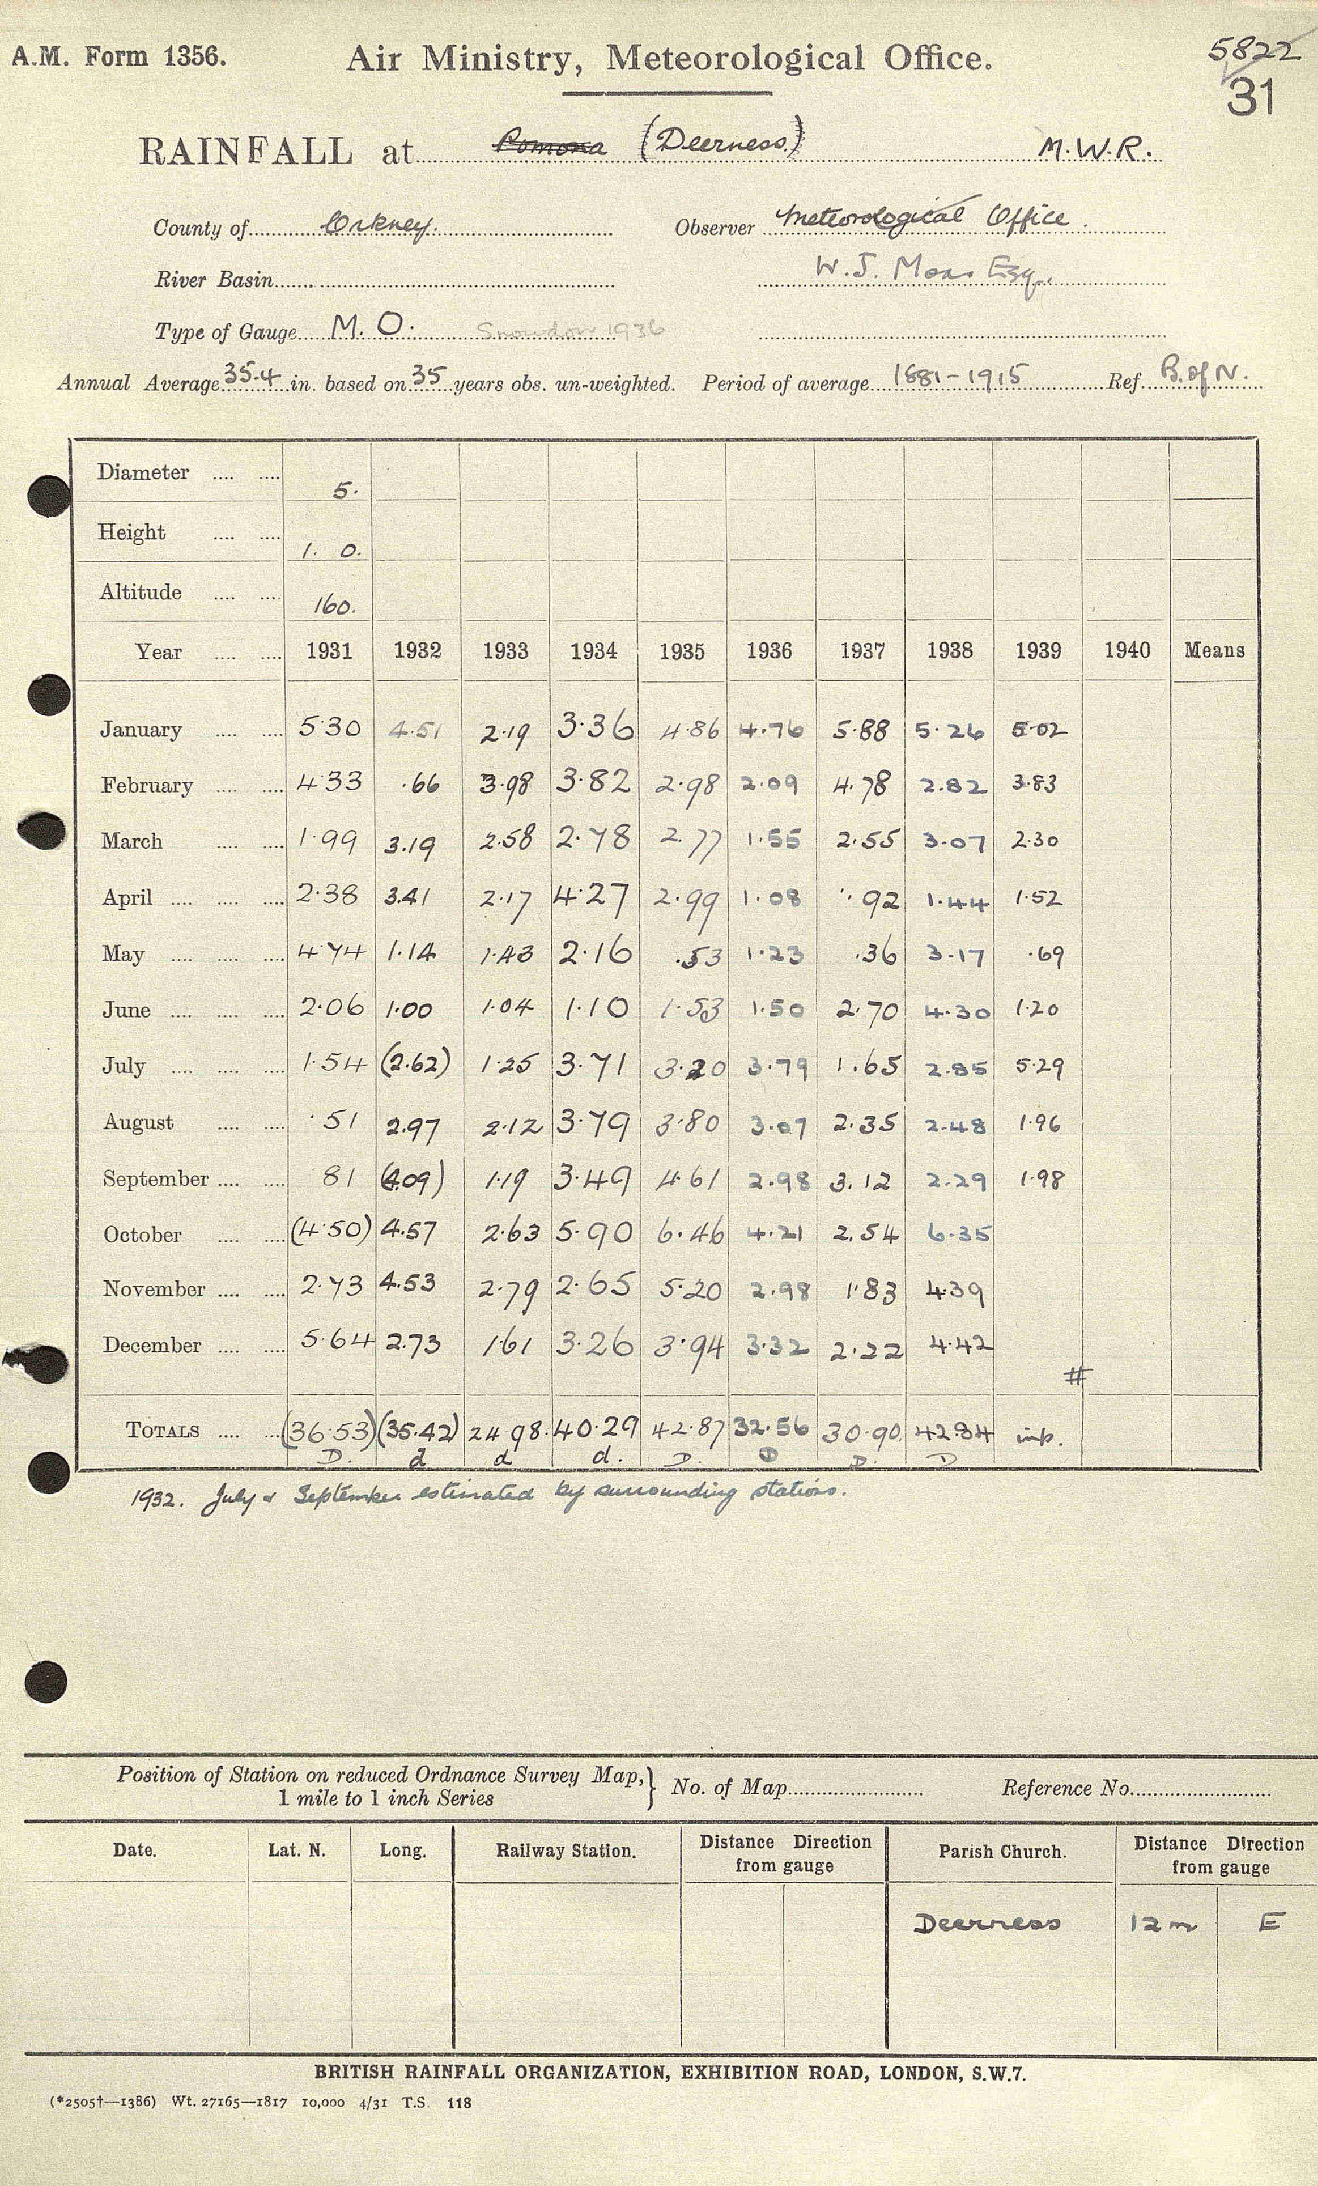 A.M. Form 1356. Air Ministry, Meteorological Office. 5822
31
RAINFALL at Pomona (Deerness) M.W.R.
County of Orkney. Observer Meteorological Office
River Basin W. J. Moar Esq.
Type of Gauge M.O. Snowdon 1936
Annual Average 35.4 in. based on 35 years obs. un-weighted. Period of average 1881-1915 Ref. B. of N.
Diameter 5.
Height 1. 0.
Altitude 160.
Year 1931 1932 1933 1934 1935 1936 1937 1938 1939 1940 Means
January 5.30 4.51 2.19 3.36 4.86 4.76 5.88 5.26 5.02
February 4.33 .66 3.98 3.82 2.98 2.09 4.78 2.82 3.83
March 1.99 3.19 2.58 2.78 2.77 1.55 2.55 3.07 2.30
April 2.38 3.41 2.17 4.27 2.99 1.08 .92 1.44 1.52
May 4.74 1.14 1.43 2.16 .53 1.23 .36 3.17 .69
June 2.06 1.00 1.04 1.10 1.53 1.50 2.70 4.30 1.20
July 1.54 (2.62) 1.25 3.71 3.20 3.79 1.65 2.85 5.29
August .51 2.97 2.12 3.79 3.80 3.07 2.35 2.48 1.96
September 81 (4.09) 1.19 3.49 4.61 2.98 3.12 2.29 1.98
October (4.50) 4.57 2.63 5.90 6.46 4.21 2.54 6.35
November 2.73 4.53 2.79 2.65 5.20 2.98 1.83 4.39
December 5.64 2.73 1.61 3.26 3.94 3.32 2.22 4.42
#
TOTALS (36.53) (35.42) 24.98 40.29 42.87 32.56 30.90 42.84 inp.
D. d d d. D. D D. D
1932. July & September estimated by surrounding stations.
Position of Station on reduced Ordnance Survey Map, } No. of Map Reference No.
1 mile to 1 inch Series
Date. Lat. N. Long. Railway Station. Distance Direction from gauge Parish Church. Distance Direction from gauge
Deerness 12 m E
BRITISH RAINFALL ORGANIZATION, EXHIBITION ROAD, LONDON, S.W.7.
(*2505†—1386) Wt. 27165—1817 10,000 4/31 T.S. 118